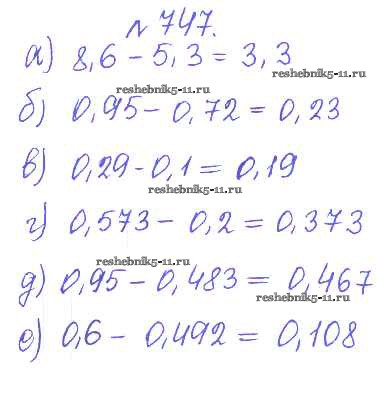 № 747.
а) 8,6 - 5,3 = 3,3
reshebnik5-11.ru
reshebnik5-11.ru
б) 0,95 - 0,72 = 0,23
в) 0,29 - 0,1 = 0,19
reshebnik5-11.ru
г) 0,573 - 0,2 = 0,373
reshebnik5-11.ru
д) 0,95 - 0,483 = 0,467
reshebnik5-11.ru
е) 0,6 - 0,492 = 0,108